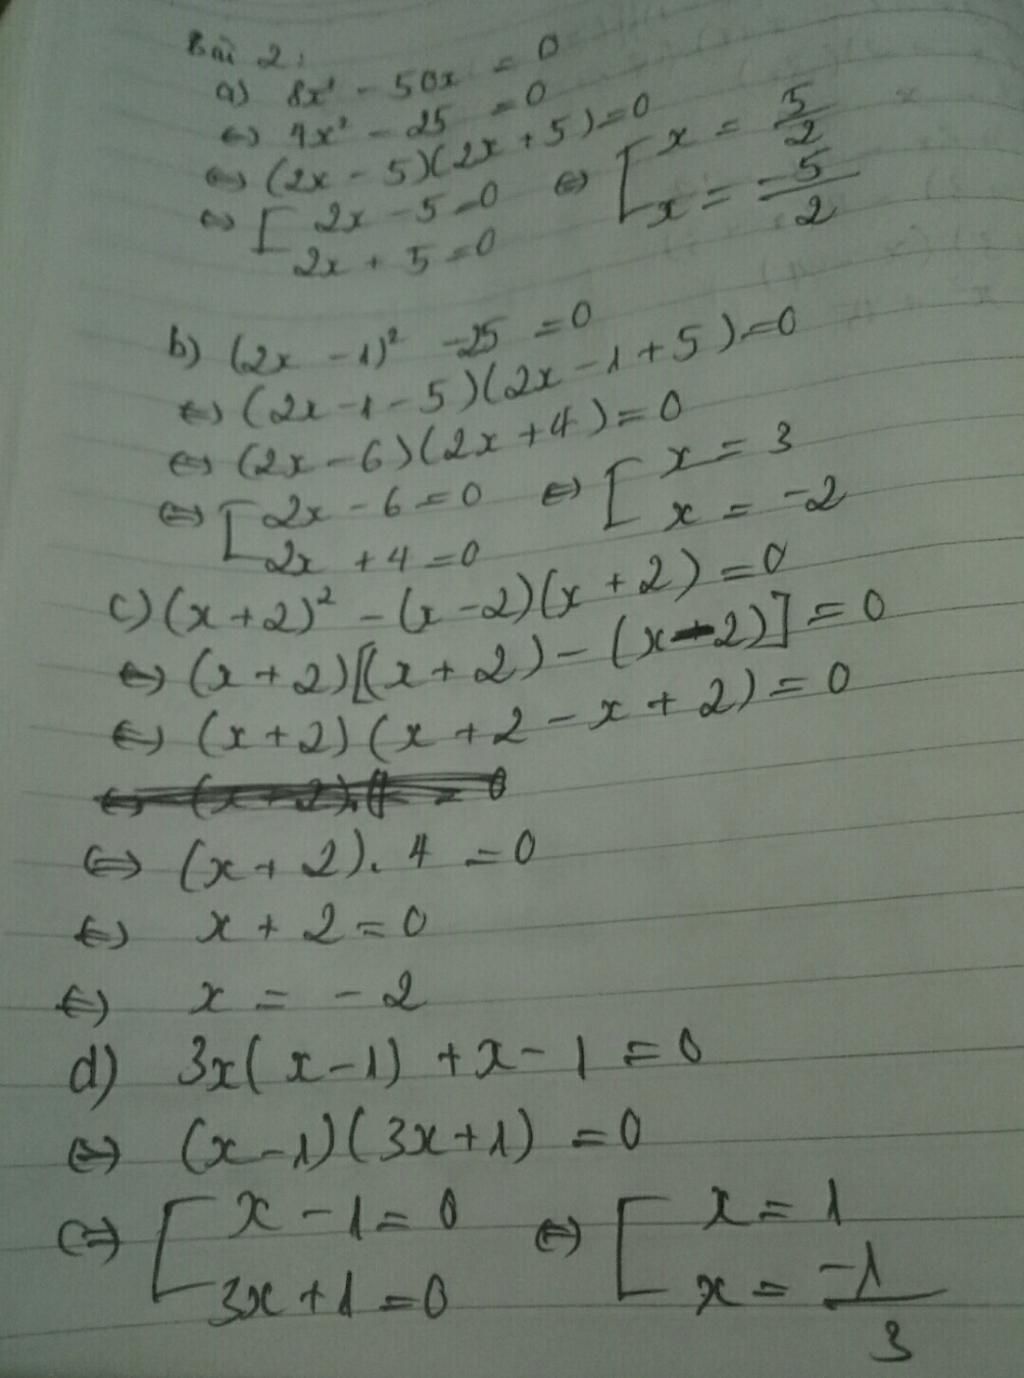 Bài 2:
a) 8x³ - 50x = 0
⇔ 4x² - 25 = 0
⇔ (2x - 5)(2x + 5) = 0
⇔ [ 2x - 5 = 0 ⇔ [ x = 5/2
2x + 5 = 0 x = -5/2
b) (2x - 1)² - 25 = 0
⇔ (2x - 1 - 5)(2x - 1 + 5) = 0
⇔ (2x - 6)(2x + 4) = 0
⇔ [ 2x - 6 = 0 ⇔ [ x = 3
2x + 4 = 0 x = -2
c) (x + 2)² - (x - 2)(x + 2) = 0
⇔ (x + 2)[(x + 2) - (x - 2)] = 0
⇔ (x + 2)(x + 2 - x + 2) = 0
⇔ (x + 2).4 = 0
⇔ (x + 2). 4 = 0
⇔ x + 2 = 0
⇔ x = -2
d) 3x(x - 1) + x - 1 = 0
⇔ (x - 1)(3x + 1) = 0
⇔ [ x - 1 = 0 ⇔ [ x = 1
3x + 1 = 0 x = -1/3